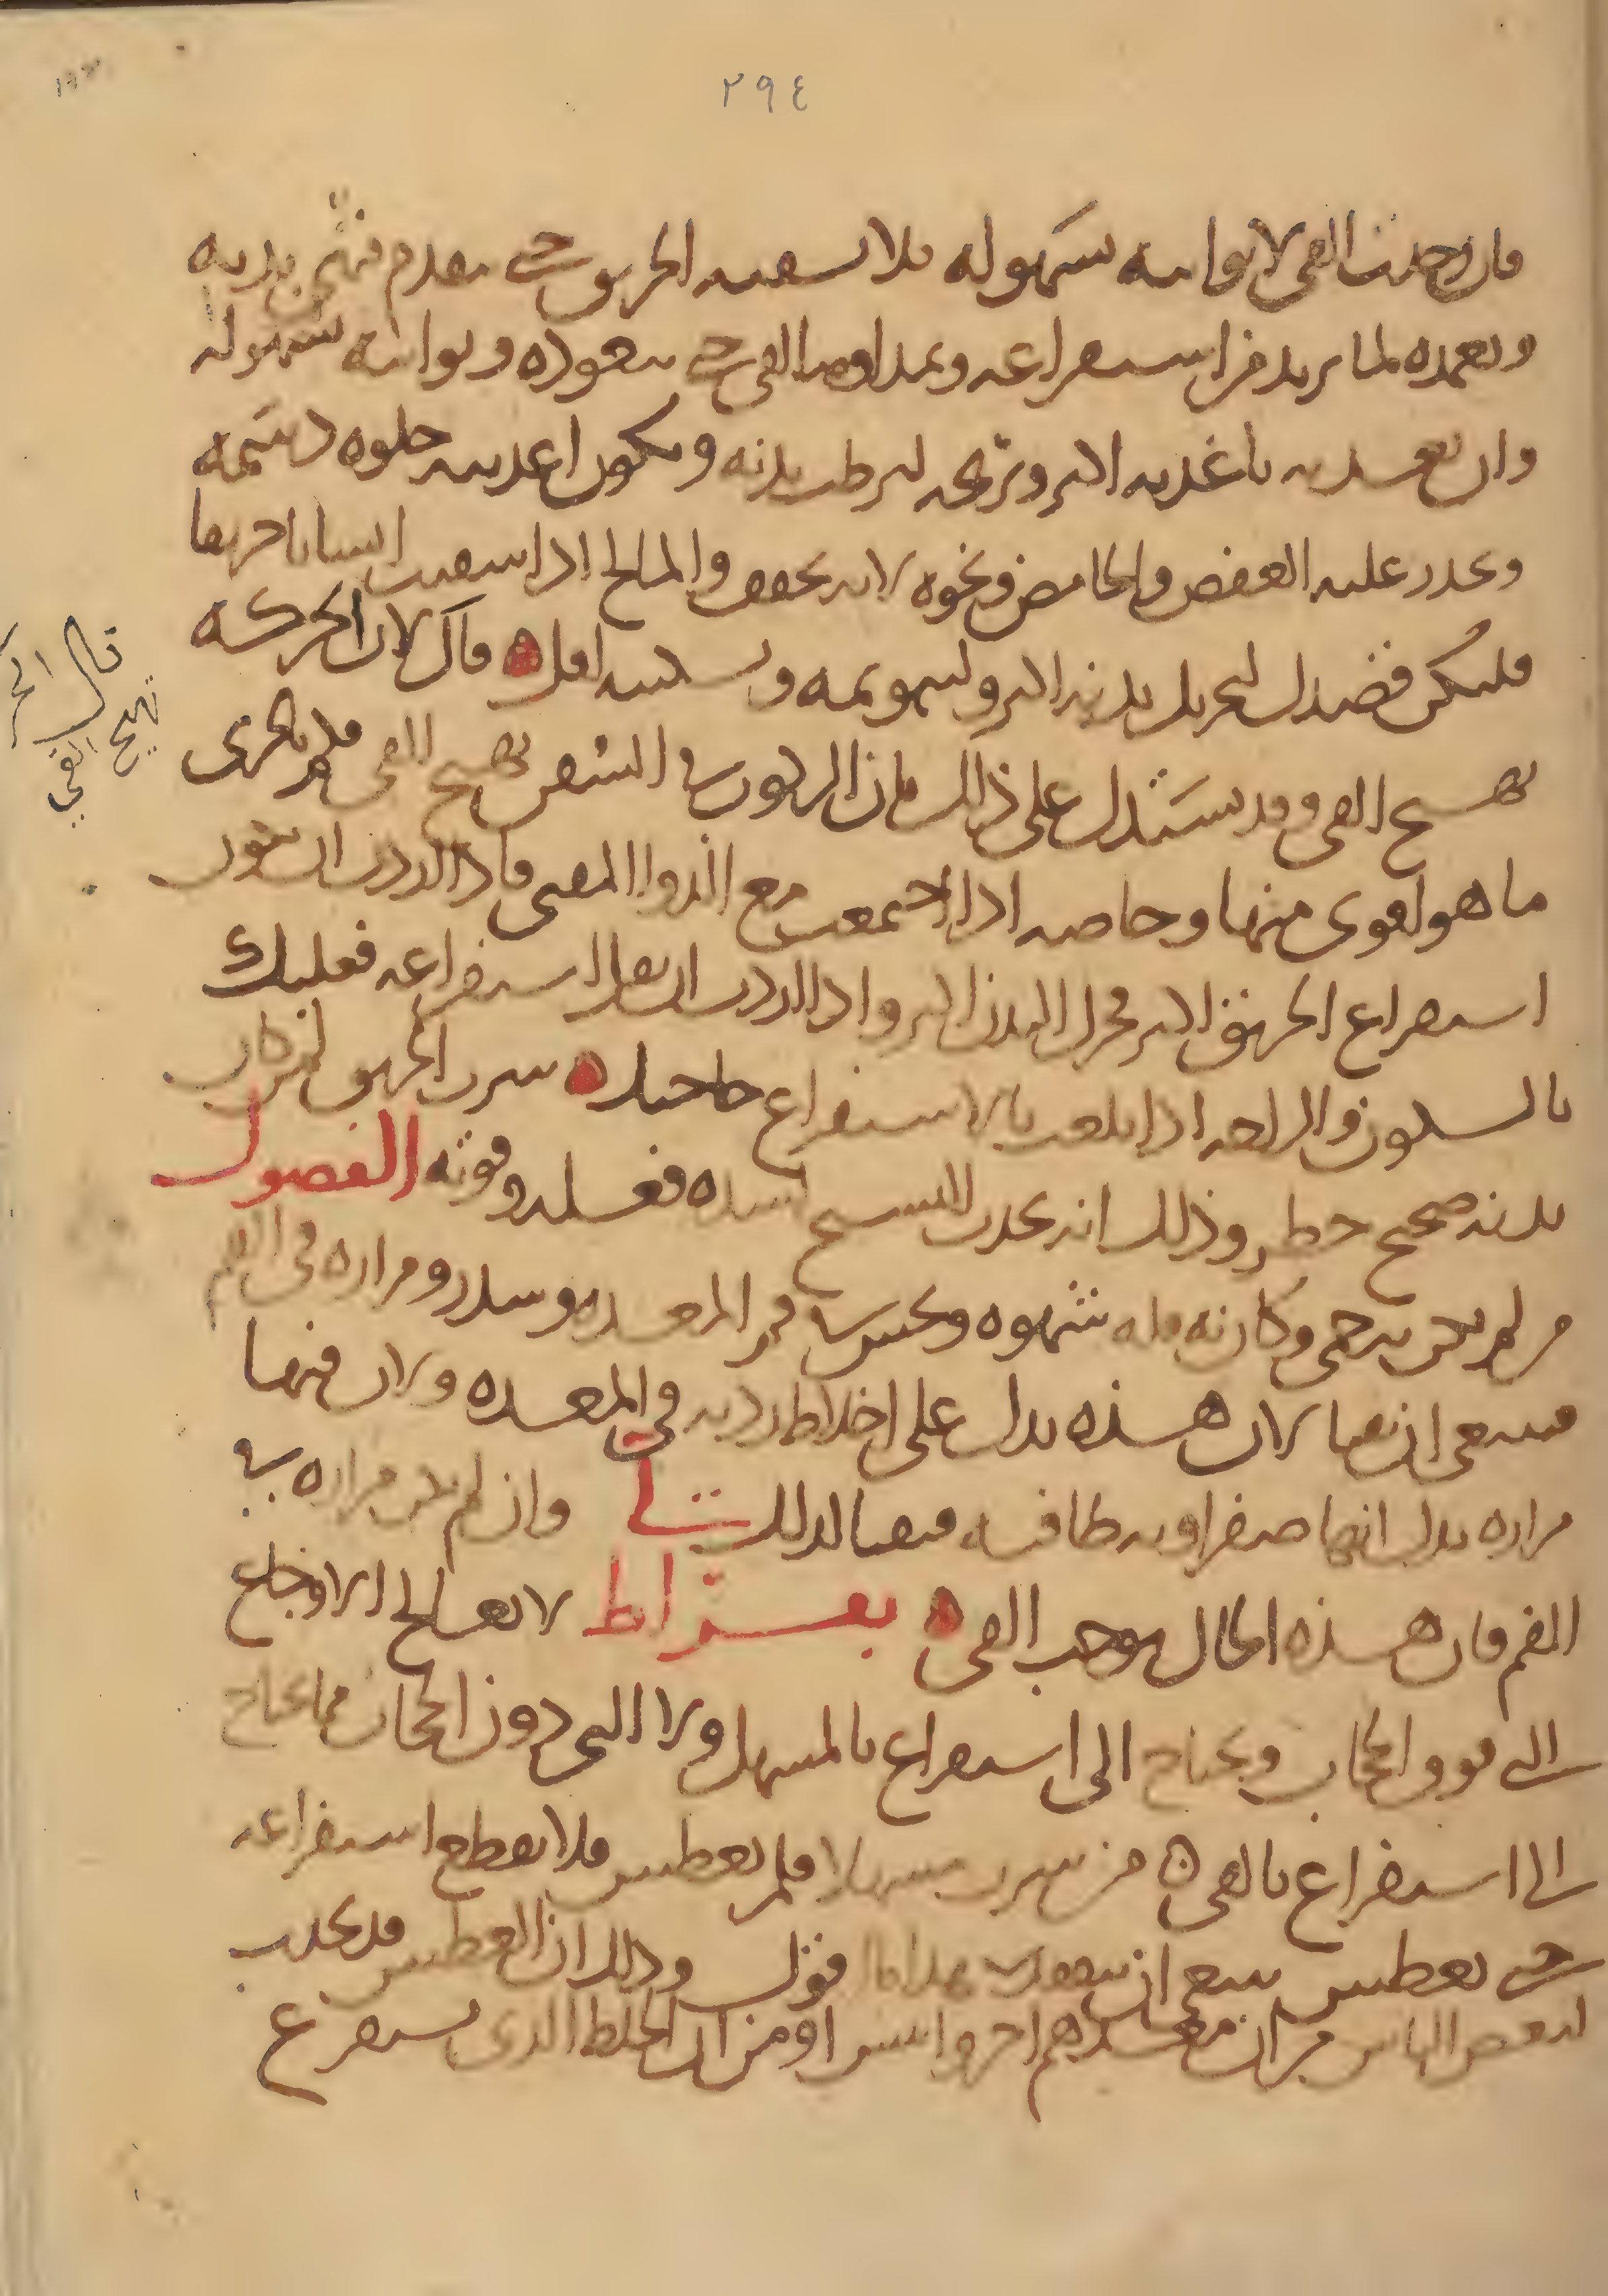 ٢٩٤
فان وجدت القي لا يواتيه بسهولة فلا تسقيه الخربق حتى تتقدم فتهيئ بدنه
وتعمده لما تريد من استفراغه وبمداومة القي حتى يتعوده ويواتيه بسهولة
وان تغذيه باغذية اكثر وتريحه ليرطب بدنه وتكون اغذيته حلوه دسمه
وتحذر عليه العفص والحامض ونحوه لانه يجفف والمالح اذا سقيت انسانا خربقا
فليكن قصدك لتحريك بدنه اكثر ولتنويمه وتسكينه اقل ه قال لان الحركه
تهيج القي وقد يستدل على ذلك فان الركوب في السفن يهيج القي فكم بالحرى
ما هو اقوى منها وخاصه اذا اجتمعت مع الدوا المقيي فاذا اردت ان يكون
استفراغ الخربق اكثر فحرك البدن اكثر واذا اردت ان يقل استفراغه فعليك
بالسكون والراحه اذا بلغت بالاستفراغ حاجتك ه شرب الخربق لمن كان
بدنه صحيح خطر وذلك انه يحدث التشنج لشده فعله وقوته الفصول
من لم يكن به حمى وكان به قله شهوه ونخس في فم المعده وسدر ومراره في الفم
فينبغي ان يقيا لان هذه تدل على اخلاط رديه في المعده ولان فيها
مراره تدل انها صفراويه طافيه فيقيا لذلك لي وان لم يكن مراره في
الفم فان هذه الحال يوجب القي ه بقراط لا تعالج الاوجاع
التي فوق الحجاب ويحتاج الى استفراغ بالمسهل ولا التي دون الحجاب مما يحتاج
الى استفراغ بالقي ه من شرب مسهلا فلم يعطش فلا يقطع استفراغه
حتى يعطش ينبغي ان بهذا قول وذلك ان العطش قد يحدث
لبعض الناس من ان معدهم احر وايبس او من ان الخلط الذي يستفرغ
قال الحر
تهيج القي